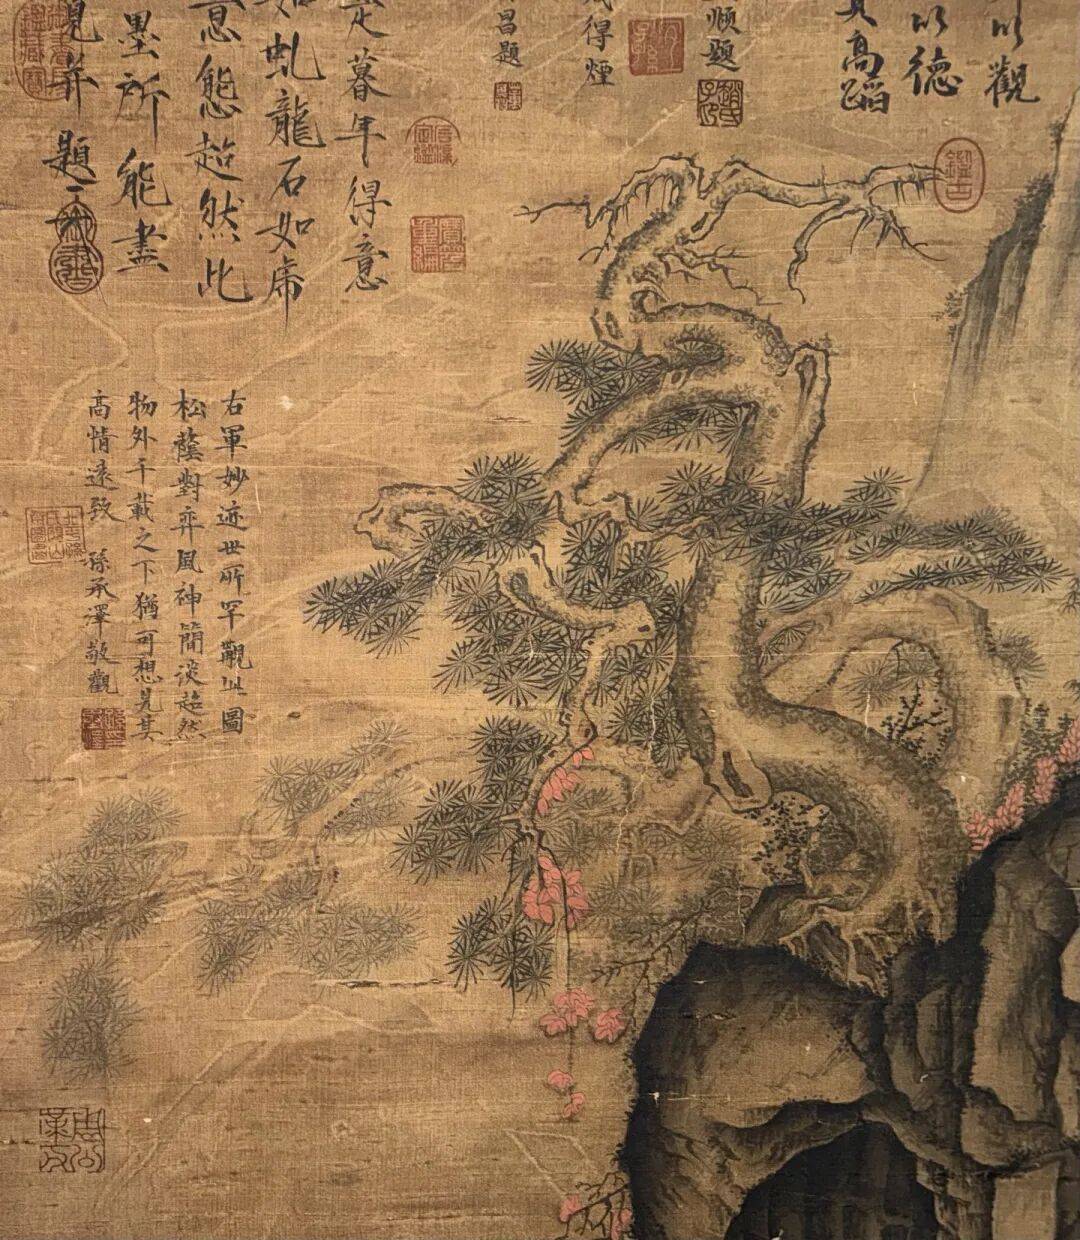 以觀
以德
高蹈
順題
得煙
昌題
是暮年得意
如虬龍石如虎
意態超然此
墨所能盡
見并題
鑑古
右軍妙迹世所罕觀此圖
松蔭對弈風神簡淡超然
物外千載之下猶可想見其
高情遠致 孫承澤敬觀